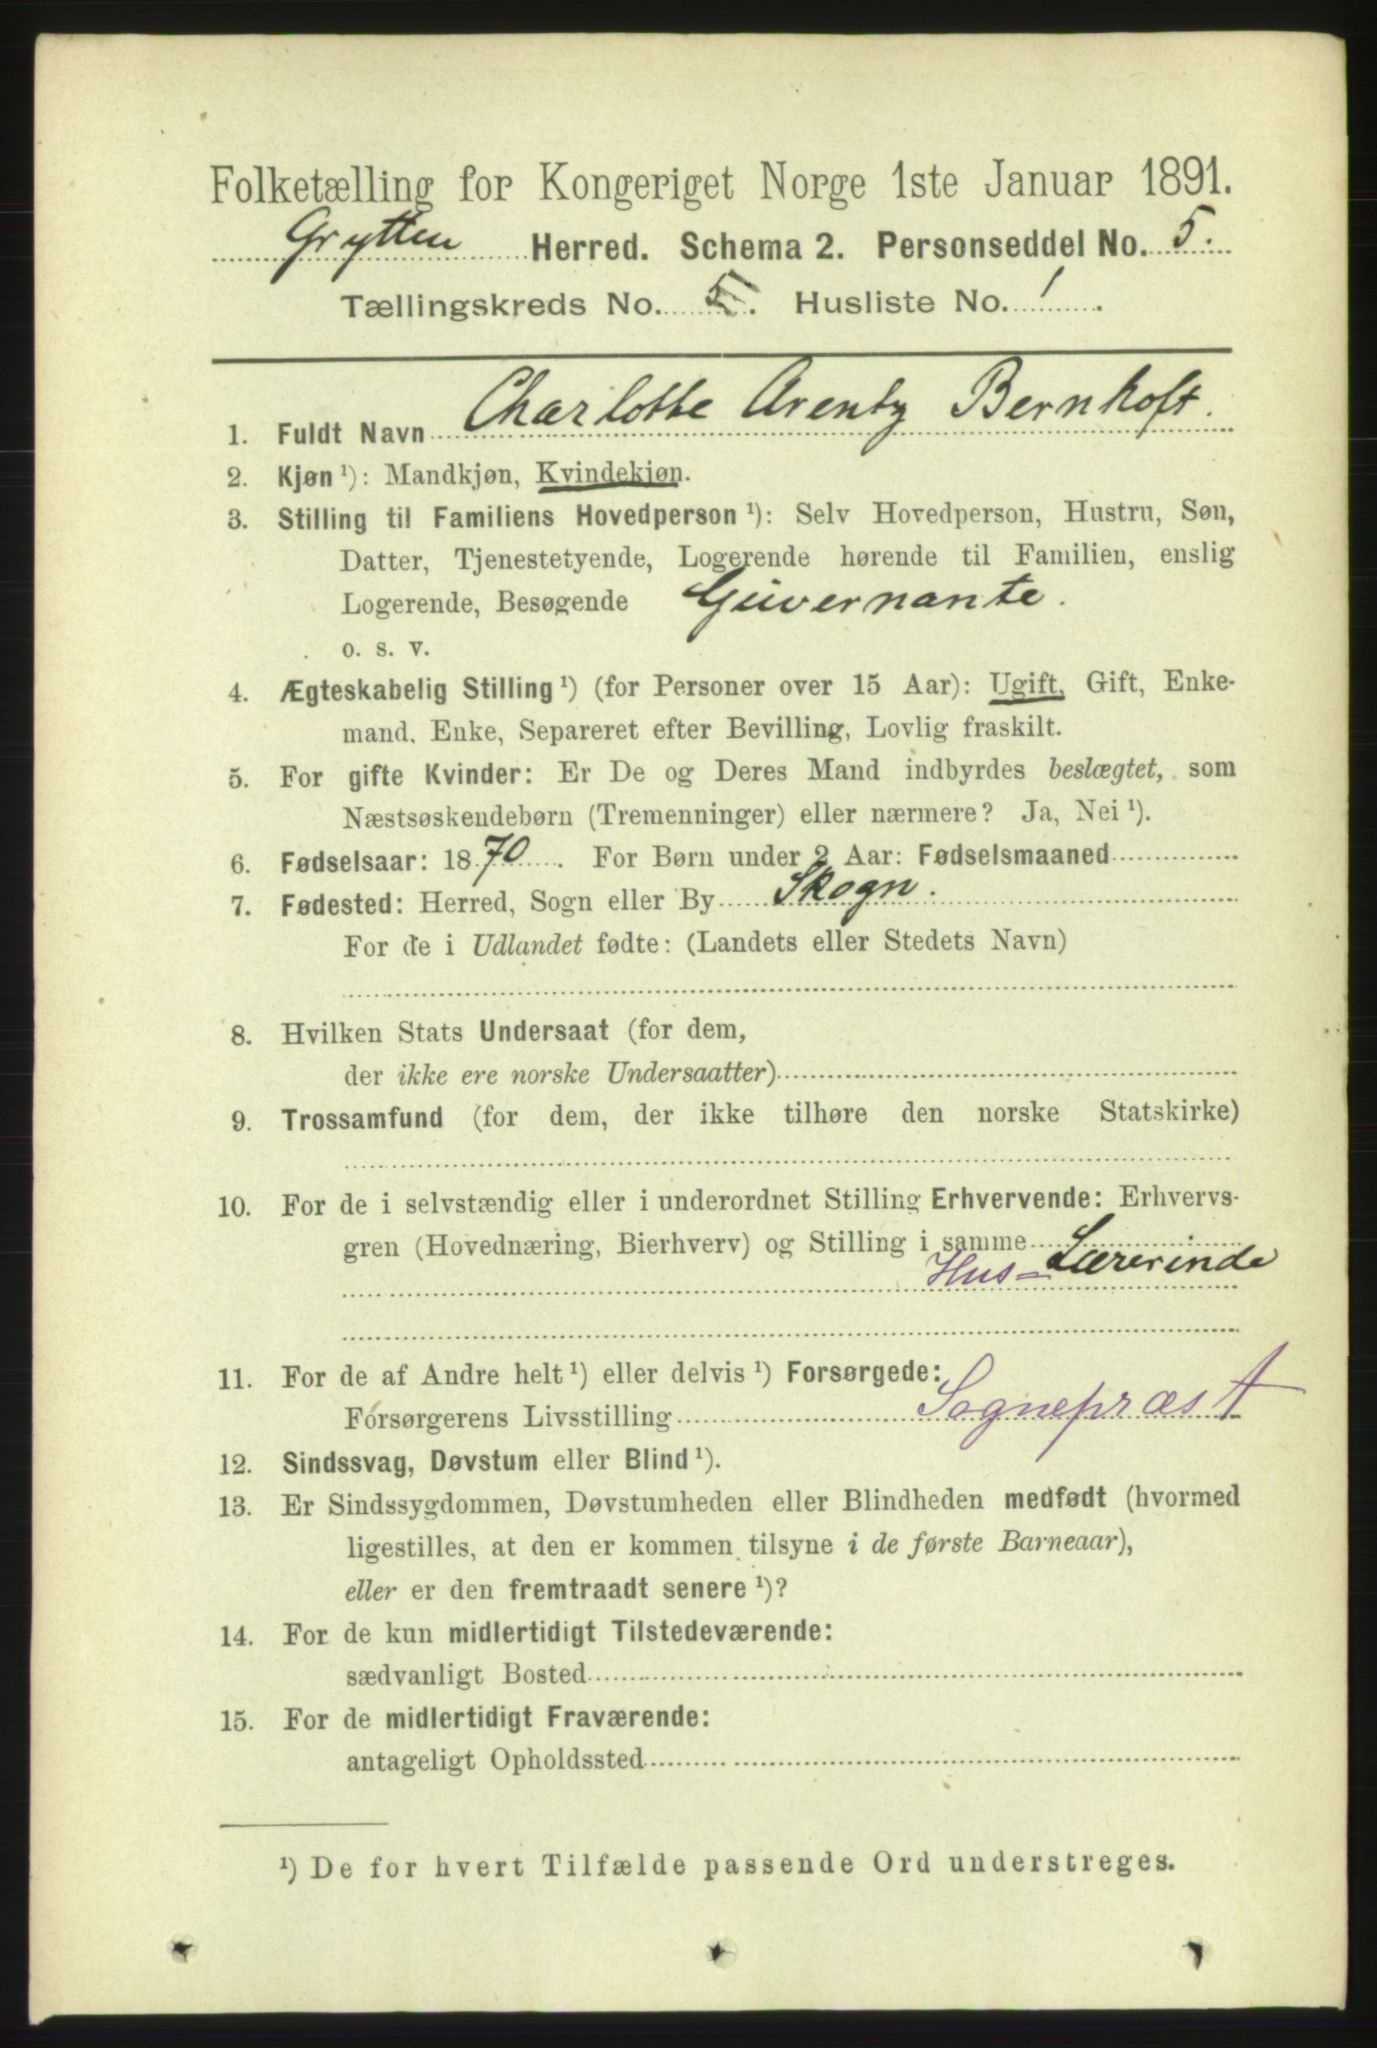 Folketælling for Kongeriget Norge 1ste Januar 1891.
Grytten Herred. Schema 2. Personseddel No. 5.
Tællingskreds No. 5. Husliste No. 1.
1. Fuldt Navn Charlotte Arentz Bernhoft.
2. Kjøn ¹): Mandkjøn, Kvindekjøn.
3. Stilling til Familiens Hovedperson ¹): Selv Hovedperson, Hustru, Søn,
Datter, Tjenestetyende, Logerende hørende til Familien, enslig
Logerende, Besøgende Guvernante.
o. s. v.
4. Ægteskabelig Stilling ¹) (for Personer over 15 Aar): Ugift, Gift, Enke-
mand, Enke, Separeret efter Bevilling, Lovlig fraskilt.
5. For gifte Kvinder: Er De og Deres Mand indbyrdes beslægtet, som
Næstsøskendebørn (Tremenninger) eller nærmere? Ja, Nei ¹).
6. Fødselsaar: 1870. For Børn under 2 Aar: Fødselsmaaned
7. Fødested: Herred, Sogn eller By Skogn.
For de i Udlandet fødte: (Landets eller Stedets Navn)
8. Hvilken Stats Undersaat (for dem,
der ikke ere norske Undersaatter)
9. Trossamfund (for dem, der ikke tilhøre den norske Statskirke)
10. For de i selvstændig eller i underordnet Stilling Erhvervende: Erhvervs-
gren (Hovednæring, Bierhverv) og Stilling i samme
Hus-Lærerinde
11. For de af Andre helt ¹) eller delvis ¹) Forsørgede:
Forsørgerens Livsstilling Sognepræst
12. Sindssvag, Døvstum eller Blind ¹).
13. Er Sindssygdommen, Døvstumheden eller Blindheden medfødt (hvormed
ligestilles, at den er kommen tilsyne i de første Barneaar),
eller er den fremtraadt senere ¹)?
14. For de kun midlertidigt Tilstedeværende:
sædvanligt Bosted
15. For de midlertidigt Fraværende:
antageligt Opholdssted
¹) De for hvert Tilfælde passende Ord understreges.